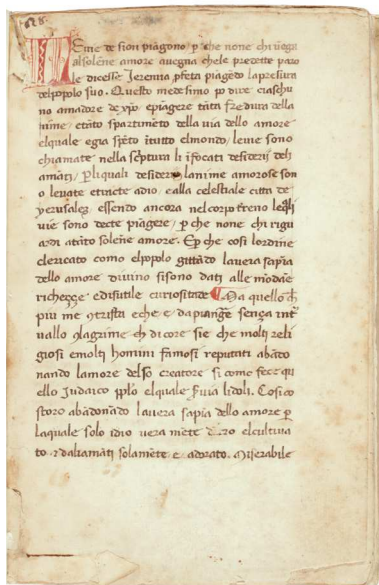 628.
LE uie de sion piāgono p che none chi uēga
alsolēne amore auegna chele predette paro
le dicesse Jeremia, pfeta piagēdo lapresura
delpopolo suo. Questo medesimo po dire ciaschu
no amadore de xpo epiagere tāta fredura della
nime, etāto spartimēto della via dello amore
elquale egia spēto ītutto elmondo, leuie sono
chiamate nella scptura li īfocati desiderij deli
amāti, pliquali desiderij lanime amorose son
o leuate etincte adio, ealla celestiale citta de
yerusalez, essendo ancora nelcorpo treno leqli
uie sono decte piāgere, p che none chi rigu
ardi atāto solēne amore. Ep che cosi lordine
clericato como elpopolo gittādo lauera sapīa
dello amore diuino sisono dati alle modāe
richezze, edisutile curiositade ¶ Ma quello ch
piu me ɔtrista eche e dapiangē senza int
uallo ɔlagrime ch dicore sie che molti reli
giosi emolti homini famosi reputati abādo
nando lamore delso creatore si come fece qu
ello Judaico pplo elquale suia lidoli. Cosi co
storo abādonādo lauera sapīa dello amore p
laquale solo idio uera mēte elcultiua
to ꝛ daliamāti solamēte e, adorato. Miserabile